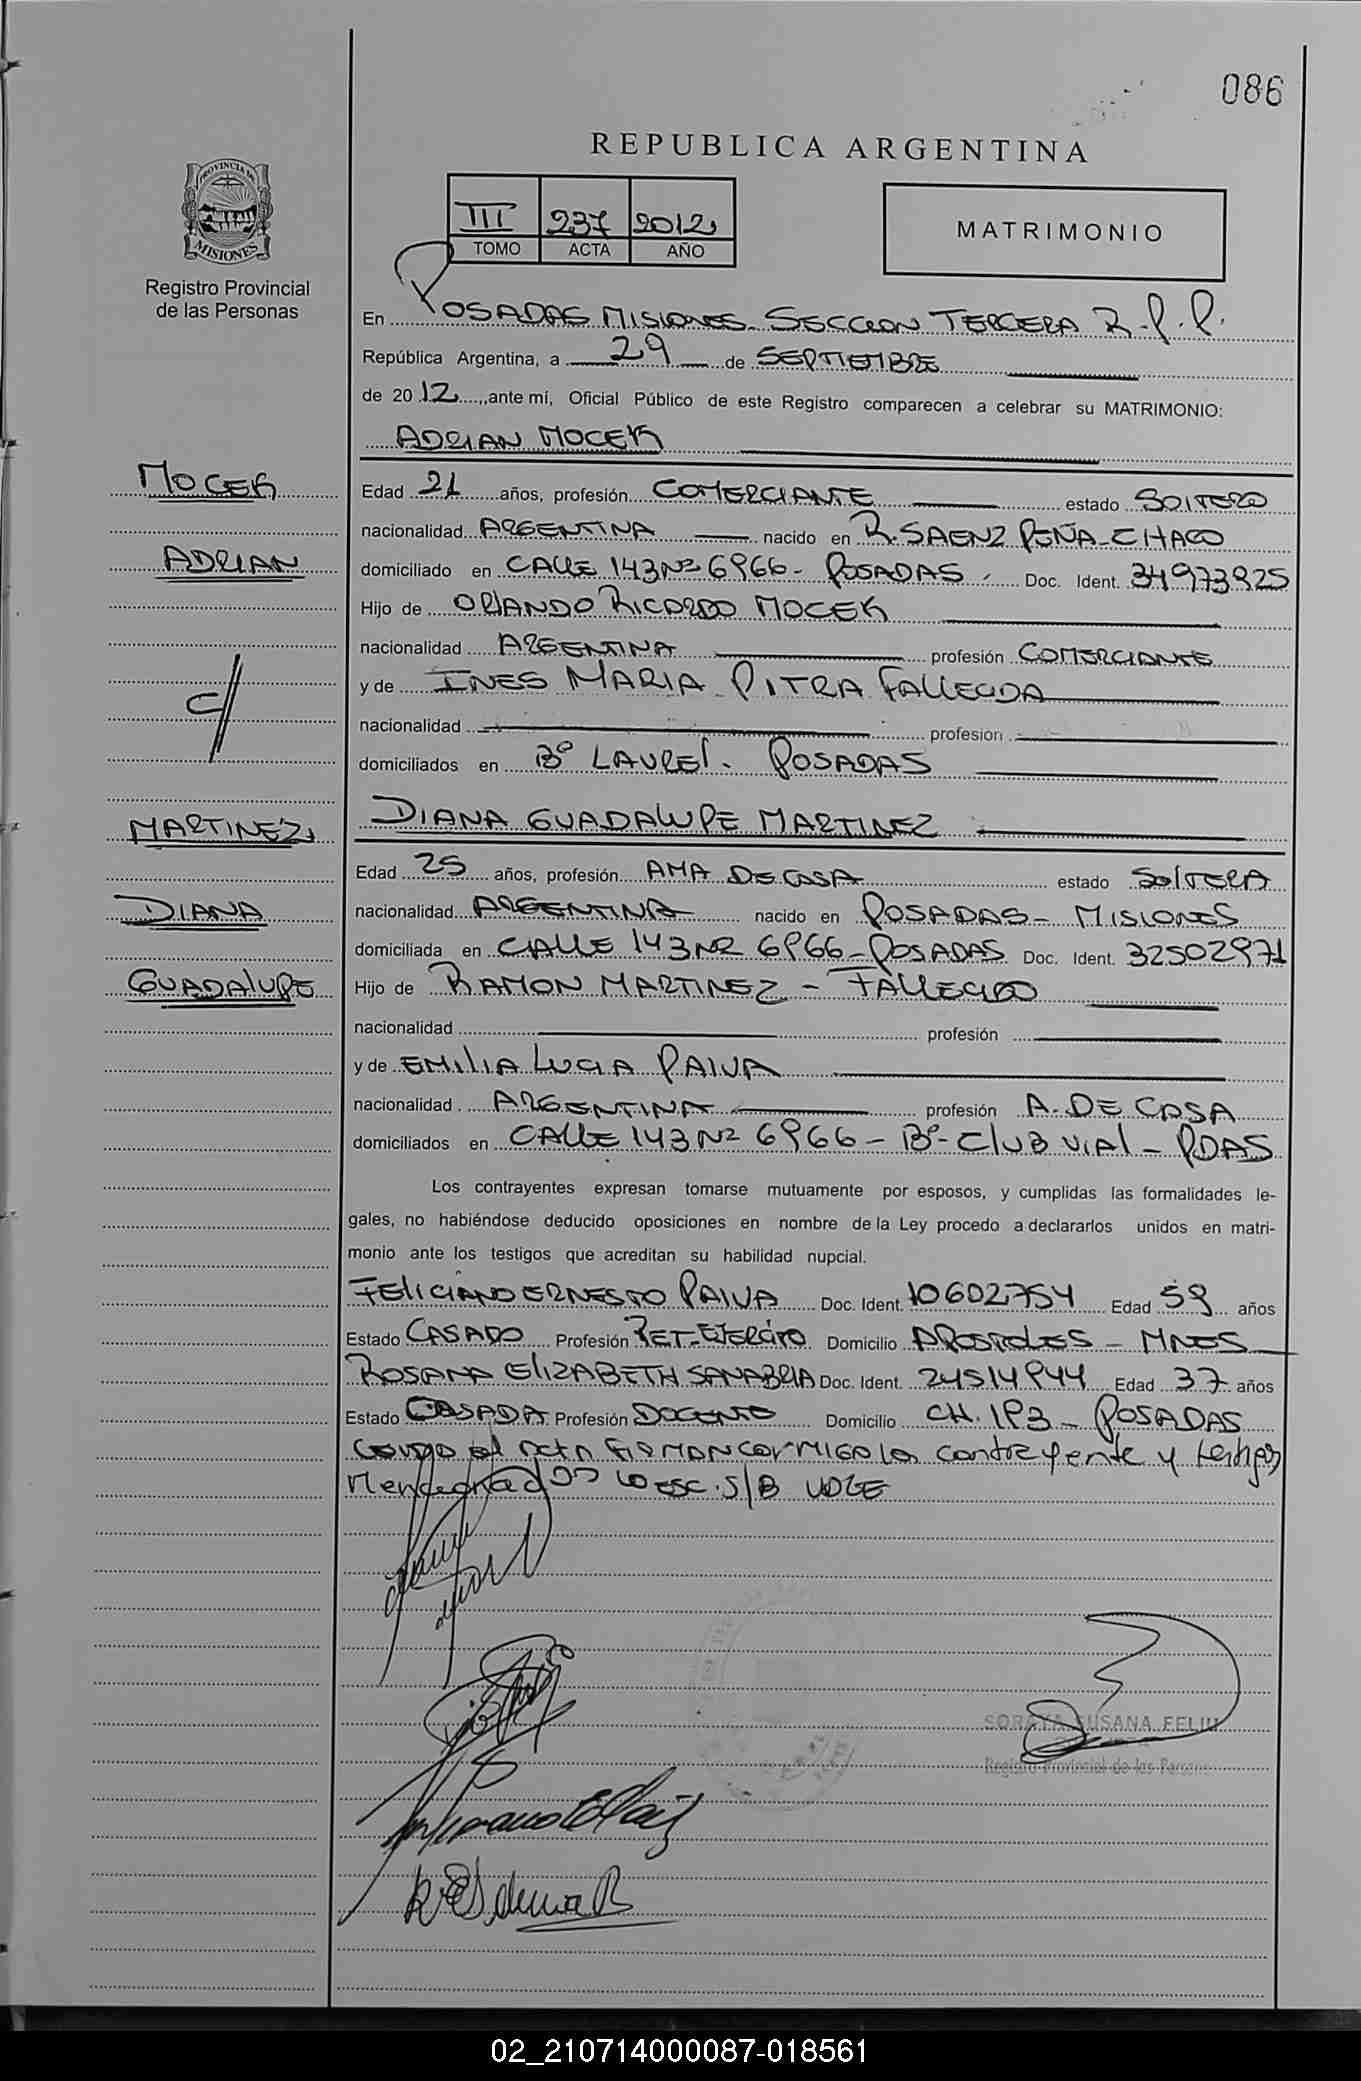 086
REPUBLICA ARGENTINA
PROVINCIA DE
MISIONES
Registro Provincial
de las Personas
III 237 2012
TOMO ACTA AÑO
MATRIMONIO
En POSADAS MISIONES. SECCION TERCERA R.P.P.
República Argentina, a 29 de SEPTIEMBRE
de 2012, ante mí, Oficial Público de este Registro comparecen a celebrar su MATRIMONIO:
ADRIAN MOCEK
MOCEK
ADRIAN
c/
MARTINEZ
DIANA
GUADALUPE
Edad 21 años, profesión COMERCIANTE estado SOLTERO
nacionalidad ARGENTINA nacido en R. SAENZ PEÑA-CHACO
domiciliado en CALLE 143 Nº 6966- POSADAS. Doc. Ident. 34973925
Hijo de ORLANDO RICARDO MOCEK
nacionalidad ARGENTINA profesión COMERCIANTE
y de INES MARIA PITRA FALLECIDA
nacionalidad profesión
domiciliados en Bº LAUREL. POSADAS
DIANA GUADALUPE MARTINEZ
Edad 25 años, profesión AMA DE CASA estado SOLTERA
nacionalidad ARGENTINA nacido en POSADAS- MISIONES
domiciliada en CALLE 143 Nº 6966-POSADAS Doc. Ident. 32502971
Hijo de RAMON MARTINEZ - FALLECIDO
nacionalidad profesión
y de EMILIA LUCIA PAIVA
nacionalidad ARGENTINA profesión A. DE CASA
domiciliados en CALLE 143 Nº 6966- Bº- CLUB VIAL - PDAS
Los contrayentes expresan tomarse mutuamente por esposos, y cumplidas las formalidades le-
gales, no habiéndose deducido oposiciones en nombre de la Ley procedo a declararlos unidos en matri-
monio ante los testigos que acreditan su habilidad nupcial.
FELICIANO ERNESTO PAIVA Doc. Ident. 10602754 Edad 59 años
Estado CASADO Profesión RET-EJERCITO Domicilio APOSTOLES - MNES
ROSANA ELIZABETH SANABRIA Doc. Ident. 24514944 Edad 37 años
Estado CASADA Profesión DOCENTE Domicilio CH. 193 - POSADAS
el acta FIRMAN CONMIGO los contrayente y testigos
Mencionados S/B VALE
SORAYA SUSANA FELIU
Registro Provincial de las Personas
02_210714000087-018561